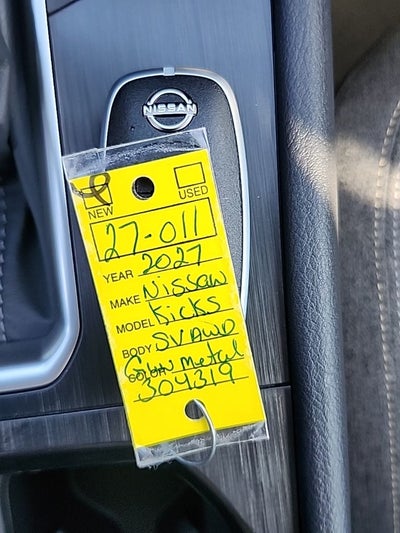 NISSAN
NEW USED
27-011
YEAR 2027
MAKE Nissan
MODEL Kicks
BODY SVAWD
COLOR Gun Metal
304319